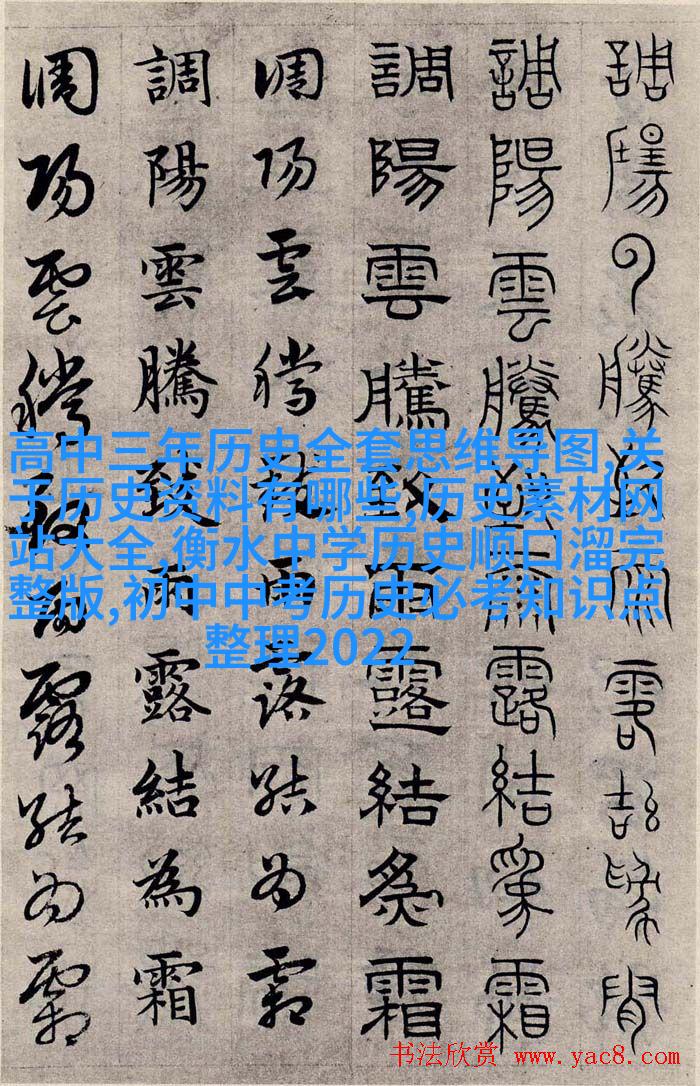 調陽雲騰致雨露結為霜
調陽雲騰致雨露結為霜
調陽雲騰致雨露結為霜
調陽雲騰致雨露結為霜
調陽雲騰致雨露結為霜
調陽雲騰致雨露結為霜
高中三年历史全套思维导图,关
于历史资料有哪些,历史素材网
站大全,衡水中学历史顺口溜完
整版,初中中考历史必考知识点
整理2022
书法欣赏 www.yac8.com